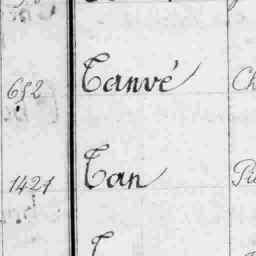 652 Tanvé Ch
1427 Tan Pie